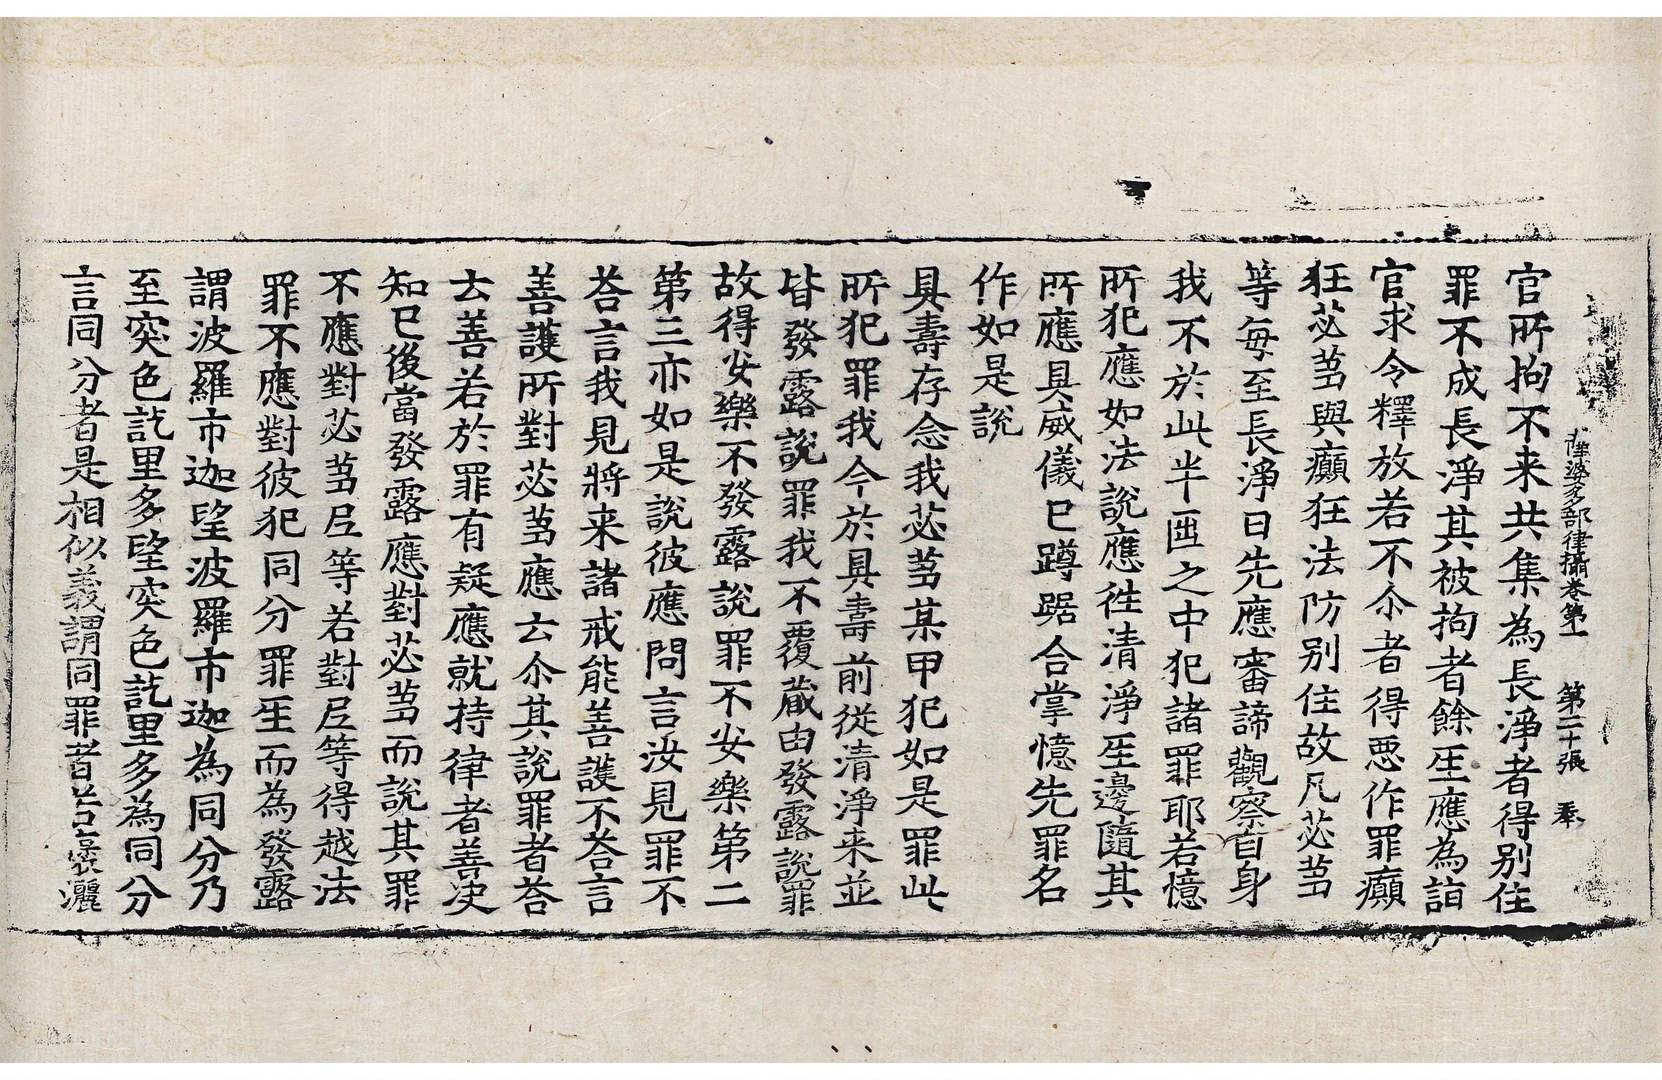 薩婆多部律攝卷第一　第二十張　奉
官所拘不来共集為長淨者得別住
罪不成長淨其被拘者餘𤯔應為詣
官求令釋放若不尒者得惡作罪癲
狂苾蒭與癲狂法防別住故凡苾蒭
等每至長淨日先應審諦觀察自身
我不於此半𠥱之中犯諸罪耶若憶
所犯應如法說應徃清淨𤯔邊隨其
所應具威儀已蹲踞合掌憶先罪名
作如是說
具壽存念我苾蒭某甲犯如是罪此
所犯罪我今於具壽前從清淨来並
皆發露說罪我不覆藏由發露說罪
故得安樂不發露說罪不安樂第二
第三亦如是說彼應問言汝見罪不
荅言我見將来諸戒能善護不荅言
善護所對苾蒭應云尒其說罪者荅
云善若於罪有疑應就持律者善决
知已後當發露應對苾蒭而說其罪
不應對苾蒭尼等若對尼等得越法
罪不應對彼犯同分罪𤯔而為發露
謂波羅市迦望波羅市迦為同分乃
至突色訖里多望突色訖里多為同分
言同分者是相似義謂同罪者若褒灑